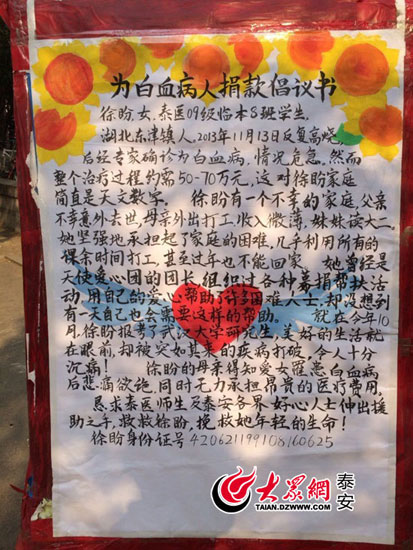 为白血病人捐款倡议书
徐盼,女,泰医09级临本8班学生,
湖北东津镇人,2013年11月13日反复高烧,
后经专家确诊为白血病,情况危急,然而
整个治疗过程约需50-70万元,这对徐盼家庭
简直是天文数字。 徐盼有一个不幸的家庭,父亲
不幸意外去世,母亲外出打工,收入微薄,妹妹读大二。
她坚强地承担起了家庭的困难,几乎利用所有的
课余时间打工,甚至过年也不能回家。 她曾经是
天使爱心团的团长,组织过各种募捐帮扶活
动,用自己的爱心帮助了许多困难人士,却没想到
有一天自己也会需要这样的帮助。 就在今年10
月,徐盼报考了武汉大学研究生,美好的生活就
在眼前,却被突如其来的疾病打破,令人十分
沉痛! 徐盼的母亲得知爱女罹患白血病
后悲痛欲绝,同时无力承担昂贵的医疗费用,
恳求泰医师生及泰安各界好心人士伸出援
助之手,救救徐盼,挽救她年轻的生命!
徐盼身份证号 420621199108160625
大众网 泰安
TAIAN.DZWWW.COM